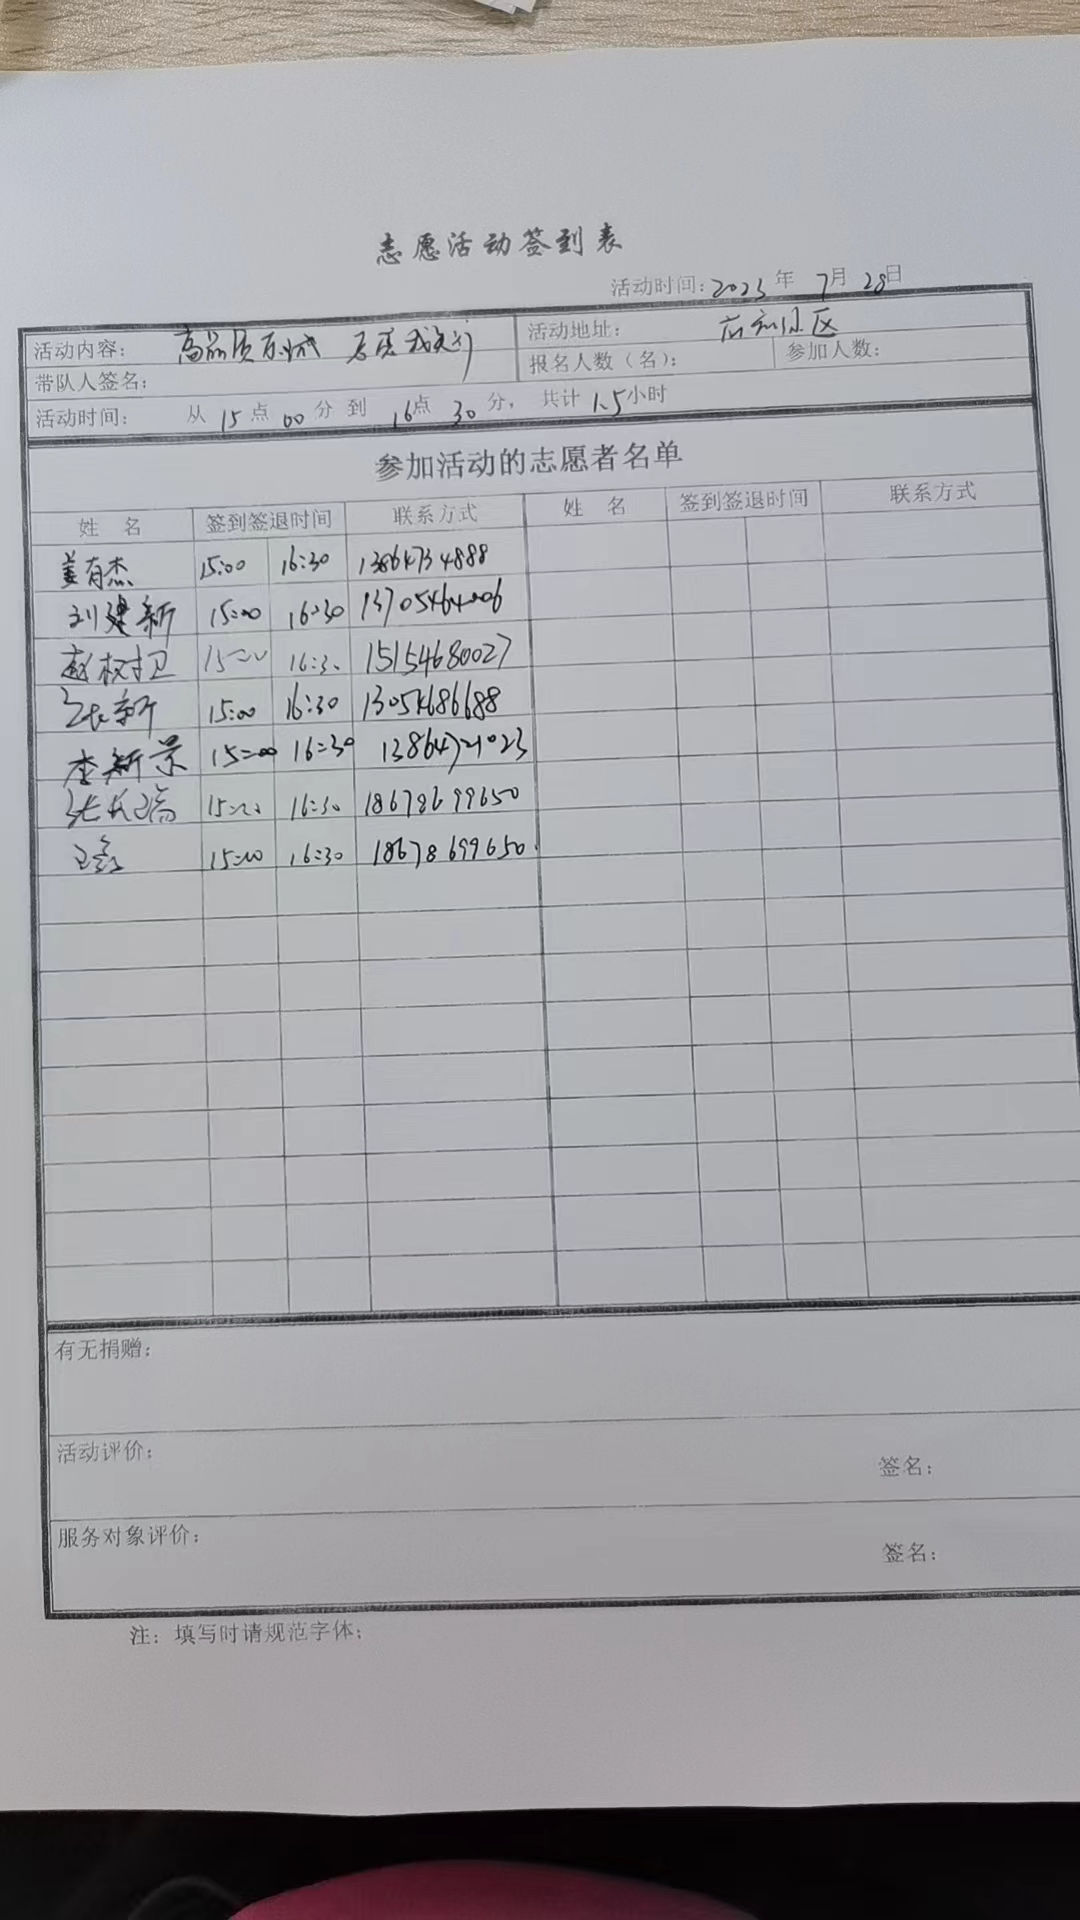 志愿活动签到表
活动时间: 2023 年 7月 28日
活动内容: 高品质 志愿我先行 活动地址: 小区
带队人签名: 报名人数（名）: 参加人数:
活动时间: 从 15 点 00 分 到 16 点 30 分， 共计 1.5 小时
参加活动的志愿者名单
姓 名 签到签退时间 联系方式 姓 名 签到签退时间 联系方式
姜有杰 15:00 16:30 13864734888
刘建新 15:00 16:30
15:00 16:30 15154680027
15:00 16:30 13054686688
李新景 15:00 16:30
15:00 16:30 18678699650
15:00 16:30 18678699650
有无捐赠:
活动评价:
签名:
服务对象评价:
签名:
注: 填写时请规范字体;